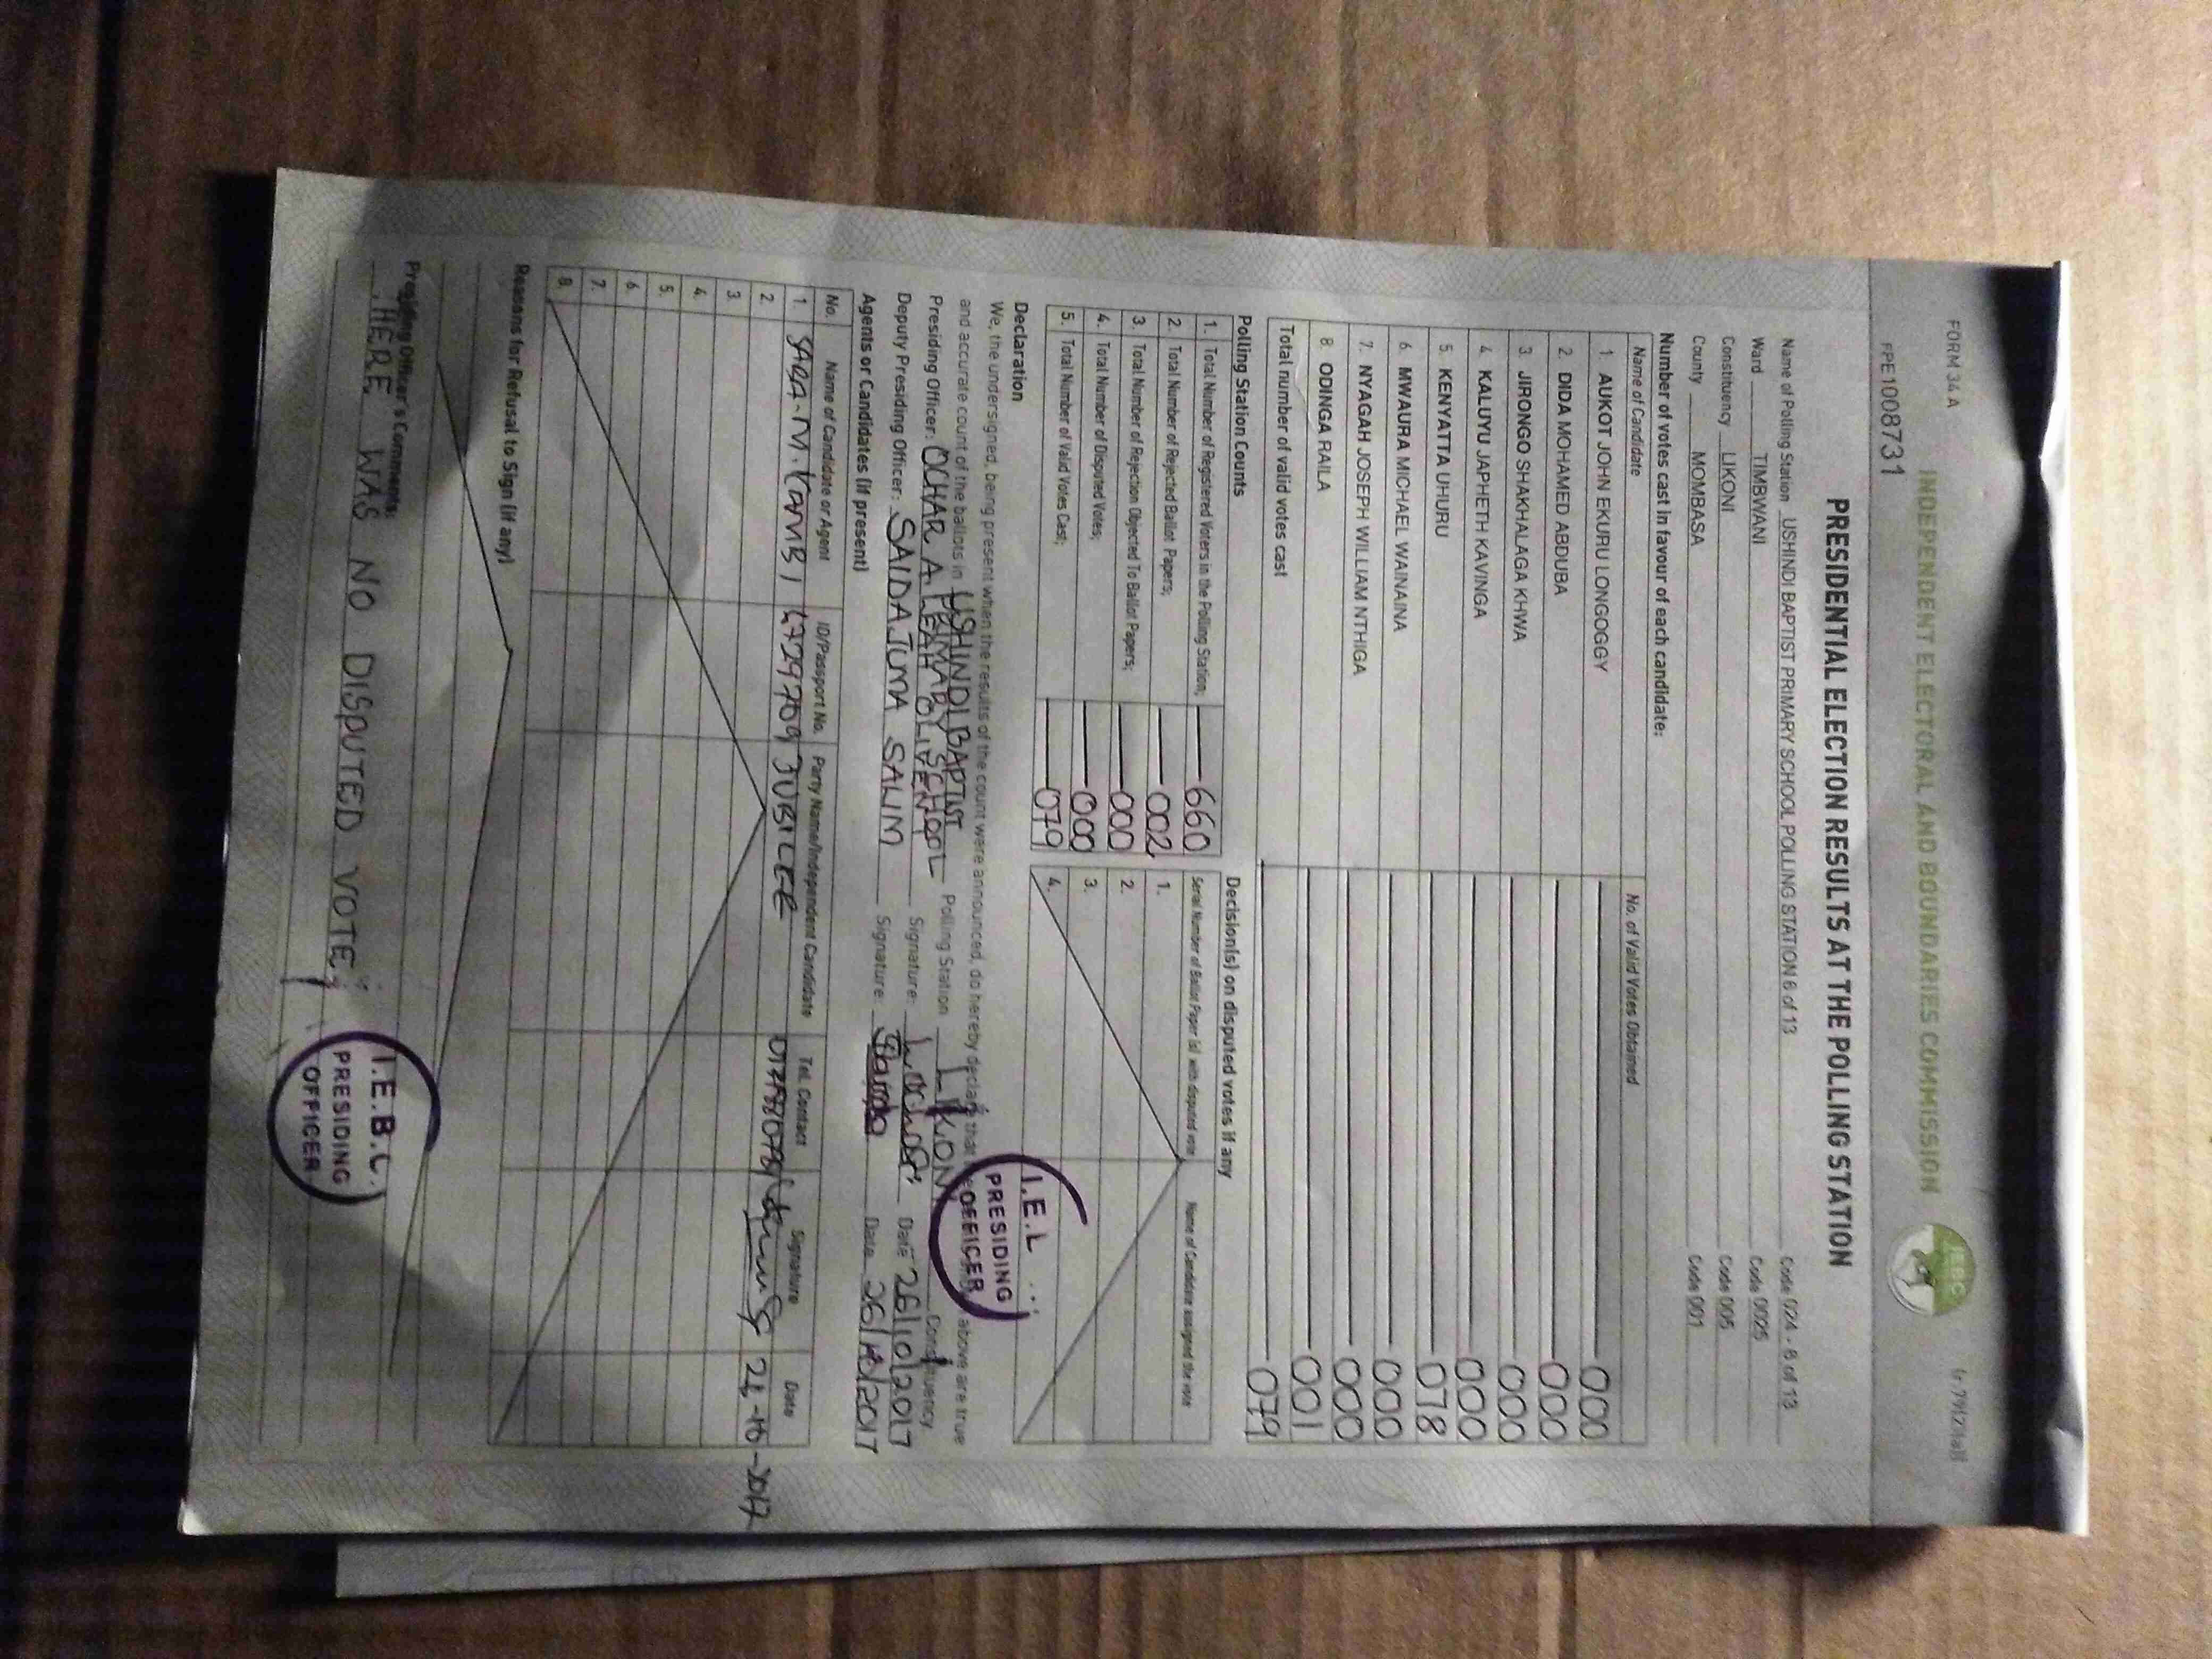 FORM 34 A
INDEPENDENT ELECTORAL AND BOUNDARIES COMMISSION
IEBC
PPE1008731
PRESIDENTIAL ELECTION RESULTS AT THE POLLING STATION
Name of Polling Station USHINDI BAPTIST PRIMARY SCHOOL POLLING STATION 6 of 13 Code 024 - 6 of 13
Ward TIMBWANI Code 0025
Constituency LIKONI Code 005
County MOMBASA Code 001
Number of votes cast in favour of each candidate:
Name of Candidate No. of Valid Votes Obtained
1. AUKOT JOHN EKURU LONGOGGY 000
2. DIDA MOHAMED ABDUBA 000
3. JIRONGO SHAKHALAGA KHWA 000
4. KALUYU JAPHETH KAVINGA 000
5. KENYATTA UHURU 078
6. MWAURA MICHAEL WAINAINA 000
7. NYAGAH JOSEPH WILLIAM NTHIGA 000
8. ODINGA RAILA 001
Total number of valid votes cast 079
Polling Station Counts
1. Total Number of Registered Voters in the Polling Station; 660
2. Total Number of Rejected Ballot Papers; 002
3. Total Number of Rejection Objected To Ballot Papers; 000
4. Total Number of Disputed Votes; 000
5. Total Number of Valid Votes Cast; 079
Decision(s) on disputed votes if any
Serial Number of Ballot Paper (s) with disputed vote Name of Candidate assigned the vote
1.
2.
3.
4.
Declaration
We, the undersigned, being present when the results of the count were announced, do hereby declare that above are true
and accurate count of the ballots in USHINDI BAPTIST PRIMARY SCHOOL Polling Station LIKONI Constituency
Presiding Officer: OCHAR A. LEAH Signature: Date 26/10/2017
Deputy Presiding Officer: SAIDA JUMA SALIM Signature: Date 26/10/2017
I.E.
PRESIDING
OFFICER
Agents or Candidates (if present)
No. Name of Candidate or Agent ID/Passport No. Party Name/Independent Candidate Tel. Contact Signature Date
1. JUBILEE 26-10-2017
2.
3.
4.
5.
6.
7.
8.
Reasons for Refusal to Sign (if any)
Presiding Officer's Comments:
THERE WAS NO DISPUTED VOTE
I.E.B.C.
PRESIDING
OFFICER